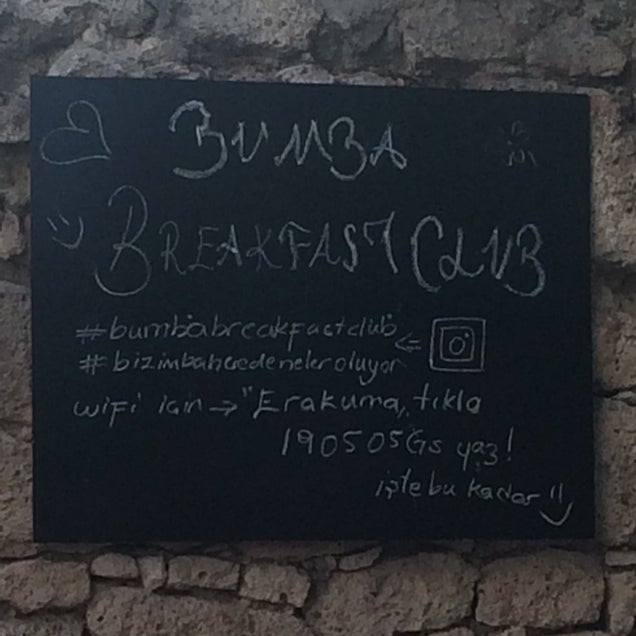 BUMBA
BREAKFAST CLUB
#bumbabreakfastclub
#bizimbahcedeneleroluyor
wifi için → "Erakuma" tıkla
190505Gs yaz!
işte bu kadar